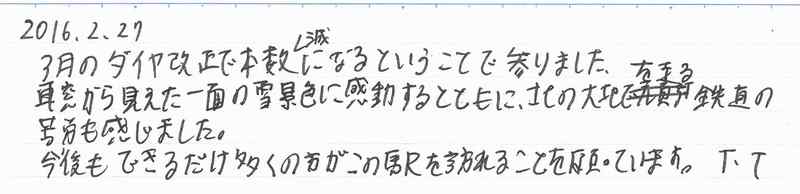 2016.2.27
3月のダイヤ改正で本数減になるということで参りました、
車窓から見えた一面の雪景色に感動するとともに、北の大地で
在来る
鉄道の
苦労も感じました。
今後もできるだけ多くの方がこの駅を訪れることを願っています。 T.T